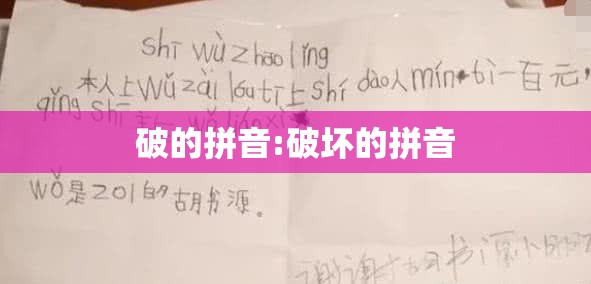 shī wù zhāo lǐng
本人上wǔ zài lóu tī上shí dào人mín bì一百元，
qǐng shī
破的拼音:破坏的拼音
wǒ是201的胡书源。
谢谢